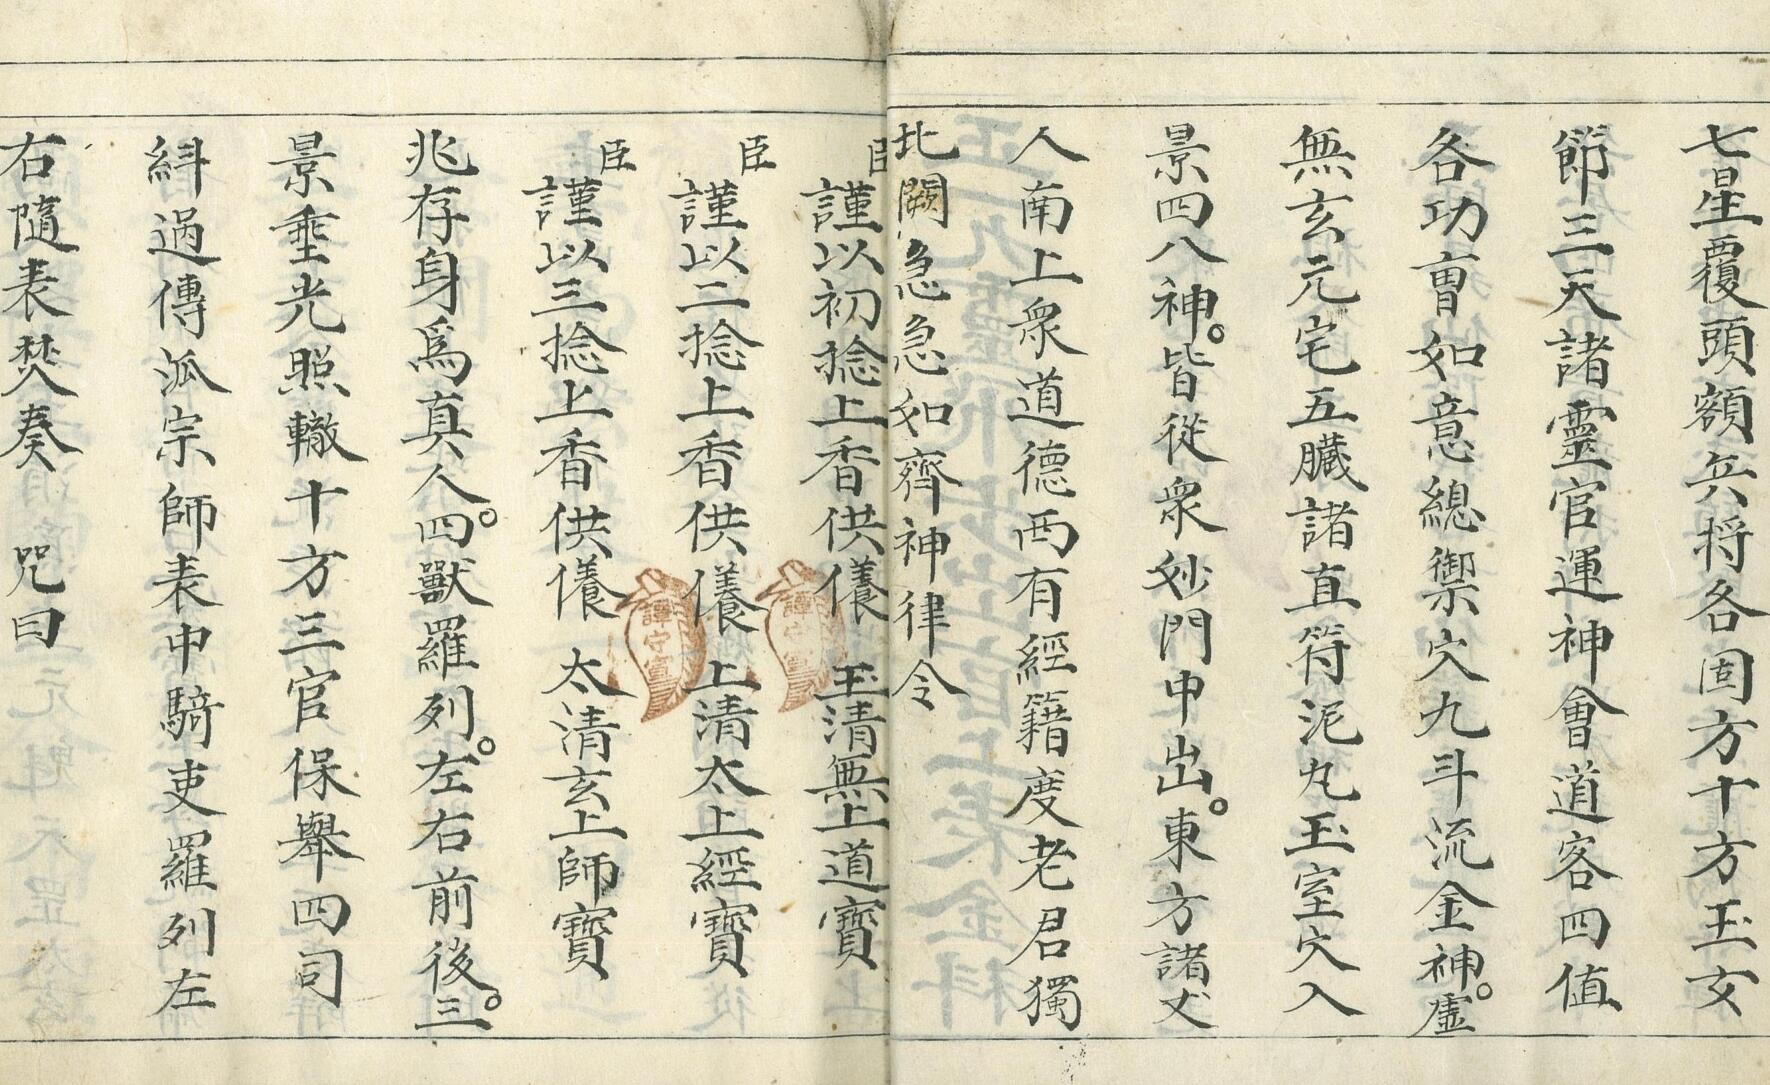 七星覆頭額兵將各固方十方玉女
節三天諸靈官運神會道客四值
各功曹如意總禦穴九斗流金神。虛
無玄元宅五臟諸直符泥丸玉室穴入
景四八神。皆從衆妙門中出。東方諸丈
人南上衆道德西有經籍度老君獨
北闕急急如齊神律令
臣謹以初捻上香供養 玉清無上道寶
臣謹以二捻上香供養 上清太上經寶
臣謹以三捻上香供養 太清玄上師寶
兆存身爲真人。四獸羅列。左右前後。三
景垂光照轍十方三官保舉四司
糾過傳派宗師表中騎吏羅列左
右隨表焚奏 咒曰
譚守寬
譚守寬